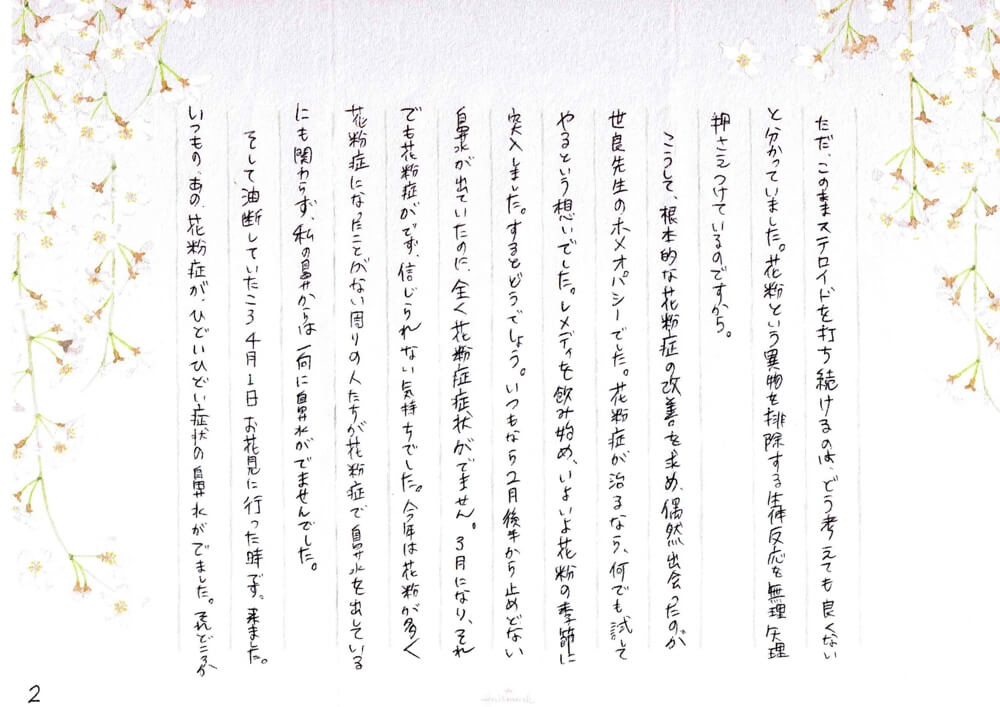 ただ、このままステロイドを打ち続けるのは、どう考えても良くない
と分かっていました。花粉という異物を排除する生体反応を無理矢理
押さえつけているのですから。
こうして、根本的な花粉症の改善を求め、偶然出会ったのが
世良先生のホメオパシーでした。花粉症が治るなら、何でも試して
やるという想いでした。レメディを飲み始め、いよいよ花粉の季節に
突入しました。するとどうでしょう。いつもなら2月後半から止めどない
鼻水が出ていたのに、全く花粉症症状がでません。3月になり、それ
でも花粉症がでず、信じられない気持ちでした。今年は花粉が多く
花粉症になったことがない周りの人たちが花粉症で鼻水を出している
にも関わらず、私の鼻からは一向に鼻水がでませんでした。
そして油断していたころ4月1日お花見に行った時です。来ました。
いつもの、あの、花粉症が、ひどいひどい症状の鼻水がでました。それどころか
2
Hallmark